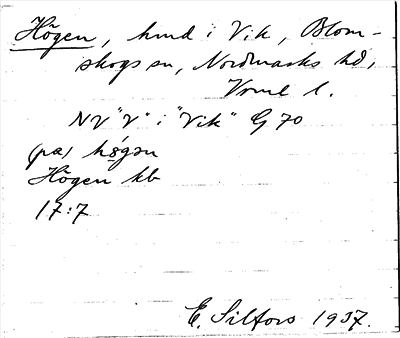 Högen, hmd i Vik, Blom-
skogs sn, Nordmarks hd,
Vrml l.
NV "V" i "Vik" G 70
(pa) hö́gən
Högen kb
17:7
E. Silfors 1937.